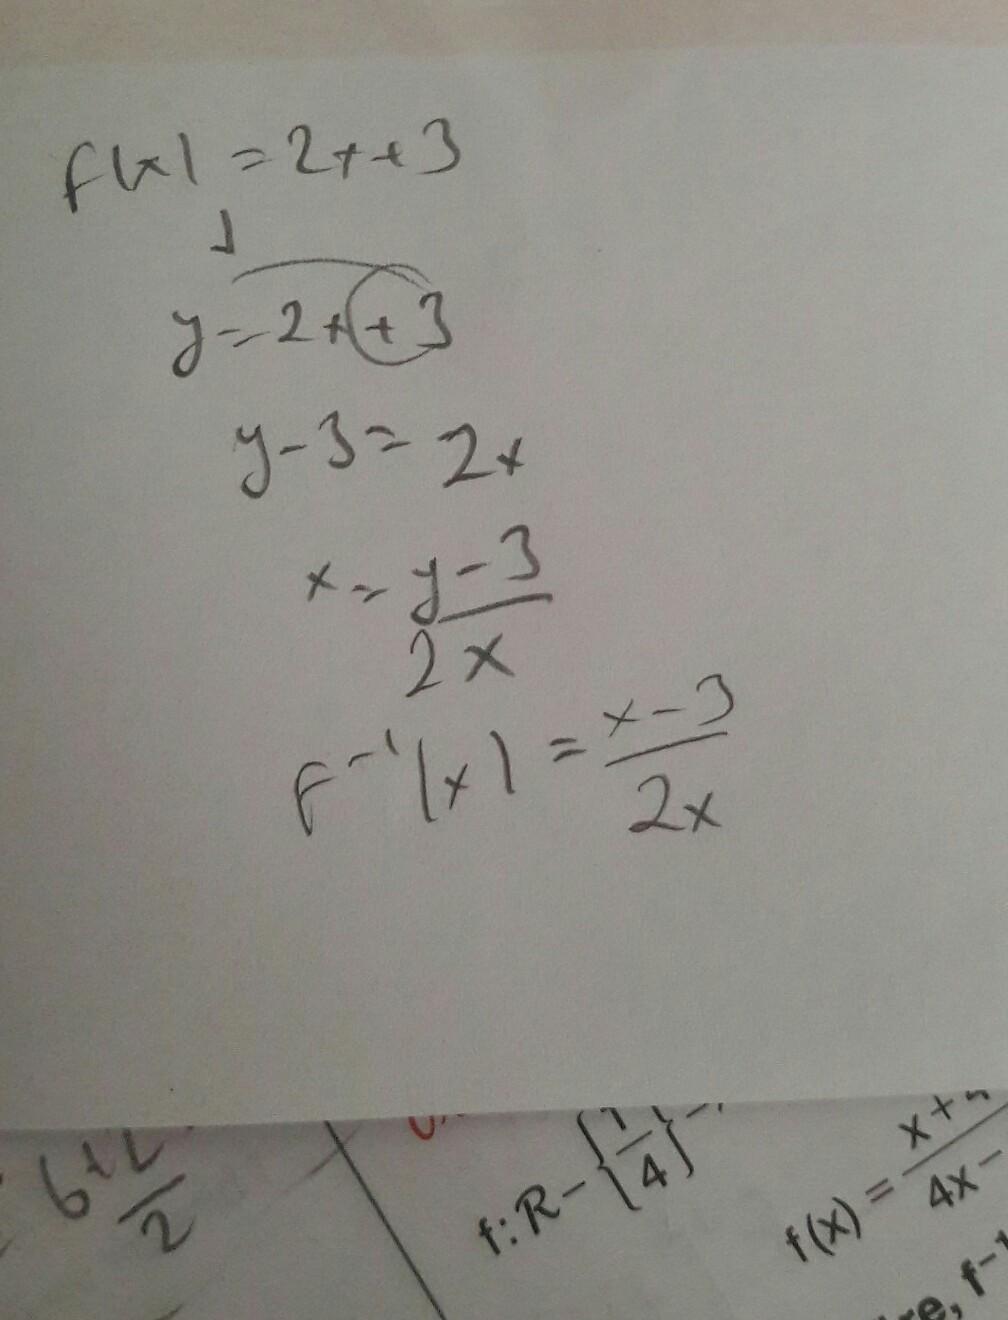 f(x) = 2x+3
y = 2x+3
y-3 = 2x
x = y-3
2x
F⁻¹(x) = x-3
2x
6+2
2
f: R - {1/4}
f(x) = x+
4x-
f⁻¹